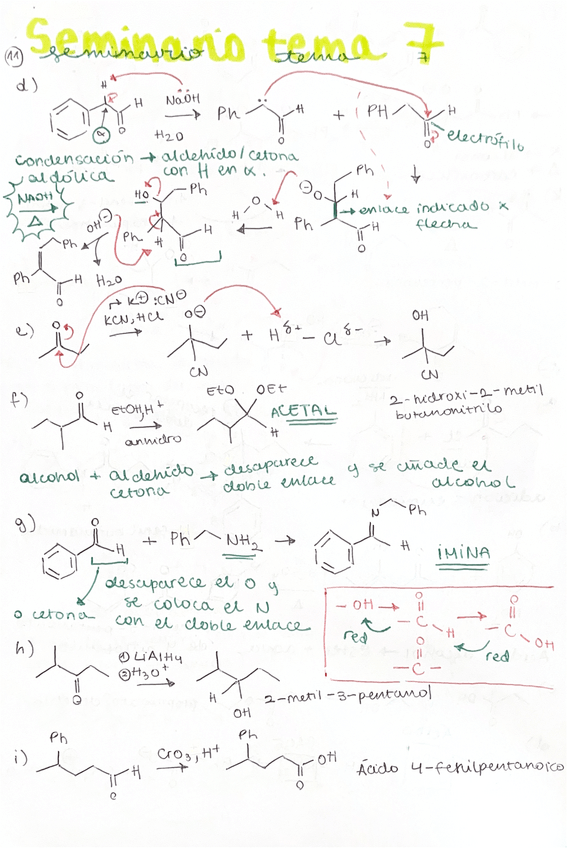 Seminario tema 7
11 seminario tema 7
d)
H
H
O
α
NaOH
H2O
Ph
H
O
+
PH
H
O
electrófilo
condensación → aldehído/cetona
aldólica con H en α.
NaOH
Δ
HO
Ph
Ph
H
H
O
H O H
Ph
O
H
Ph
H
O
→ enlace indicado x
flecha
OH⊖
Ph
Ph
H
O
H2O
e)
O
K⊕ :CN⊖
KCN, HCl
O⊖
CN
+ Hδ+ – Clδ–
OH
CN
2-hidroxi-2-metil
butanonitrilo
f)
O
H
EtOH, H+
anhidro
EtO OEt
H
ACETAL
alcohol + aldehído → desaparece y se añade el
cetona doble enlace alcohol
g)
O
H
+ Ph NH2
N Ph
H
IMINA
desaparece el O y
o cetona se coloca el N
con el doble enlace
- OH → O
-C-
H
→ O
C
OH
red
O
-C-
red
h)
O
① LiAlH4
② H3O+
H
OH
2-metil-3-pentanol
i)
Ph
H
O
CrO3, H+
Ph
OH
O
Ácido 4-fenilpentanoico